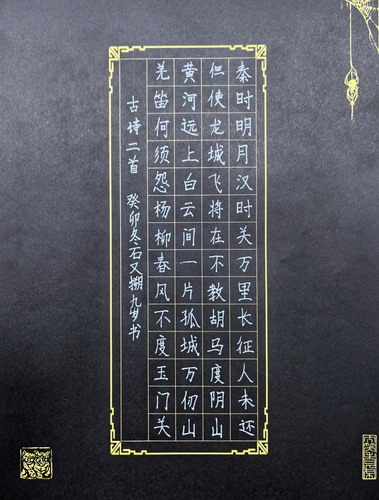 秦时明月汉时关万里长征人未还
但使龙城飞将在不教胡马度阴山
黄河远上白云间一片孤城万仞山
羌笛何须怨杨柳春风不度玉门关
古诗二首 癸卯冬石又九岁书